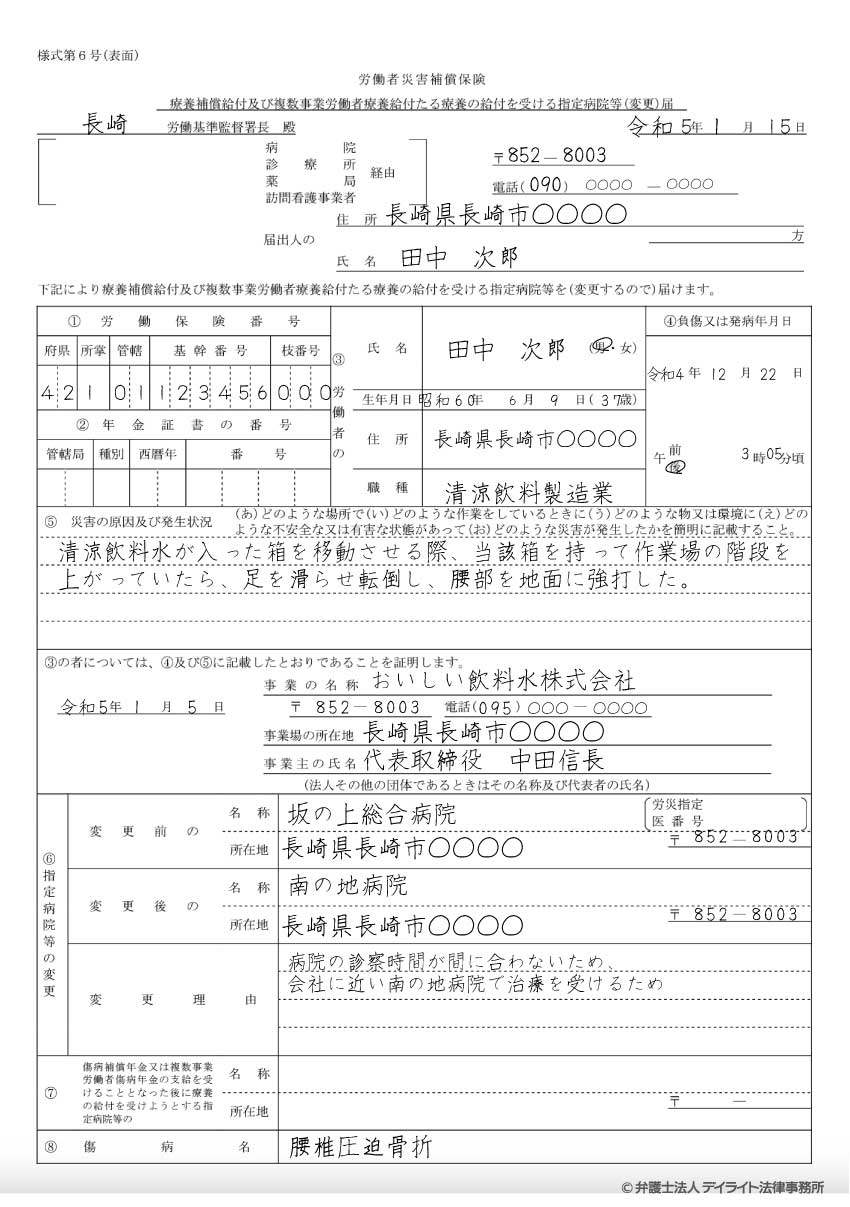 様式第6号(表面)
労働者災害補償保険
療養補償給付及び複数事業労働者療養給付たる療養の給付を受ける指定病院等(変更)届
長崎 労働基準監督署長 殿 令和5年1月15日
病院
診療所
薬局
訪問看護事業者
経由
〒852-8003
電話(090) ○○○○-○○○○
届出人の
住所 長崎県長崎市○○○○
方
氏名 田中 次郎
下記により療養補償給付及び複数事業労働者療養給付たる療養の給付を受ける指定病院等を(変更するので)届けます。
①労働保険番号
府県 所掌 管轄 基幹番号 枝番号
42 1 01 123456 000
②年金証書の番号
管轄局 種別 西暦年 番号
③労働者の
氏名 田中 次郎 (男・女)
生年月日 昭和60年6月9日(37歳)
住所 長崎県長崎市○○○○
職種 清涼飲料製造業
④負傷又は発病年月日
令和4年12月22日
午前後 3時05分頃
⑤ 災害の原因及び発生状況
(あ)どのような場所で(い)どのような作業をしているときに(う)どのような物又は環境に(え)どの
ような不安全な又は有害な状態があって(お)どのような災害が発生したかを簡明に記載すること。
清涼飲料水が入った箱を移動させる際、当該箱を持って作業場の階段を
上がっていたら、足を滑らせ転倒し、腰部を地面に強打した。
③の者については、④及び⑤に記載したとおりであることを証明します。
事業の名称 おいしい飲料水株式会社
令和5年1月5日
〒852-8003 電話(095)○○○-○○○○
事業場の所在地 長崎県長崎市○○○○
事業主の氏名 代表取締役 中田信長
(法人その他の団体であるときはその名称及び代表者の氏名)
⑥指定病院等の変更
変更前の
名称 坂の上総合病院
労災指定
医番号
所在地 長崎県長崎市○○○○
〒852-8003
変更後の
名称 南の地病院
所在地 長崎県長崎市○○○○
〒852-8003
変更理由
病院の診察時間が間に合わないため、
会社に近い南の地病院で治療を受けるため
⑦
傷病補償年金又は複数事業
労働者傷病年金の支給を受
けることとなった後に療養
の給付を受けようとする指
定病院等の
名称
所在地
〒 -
⑧ 傷病名 腰椎圧迫骨折
© 弁護士法人 デイライト法律事務所